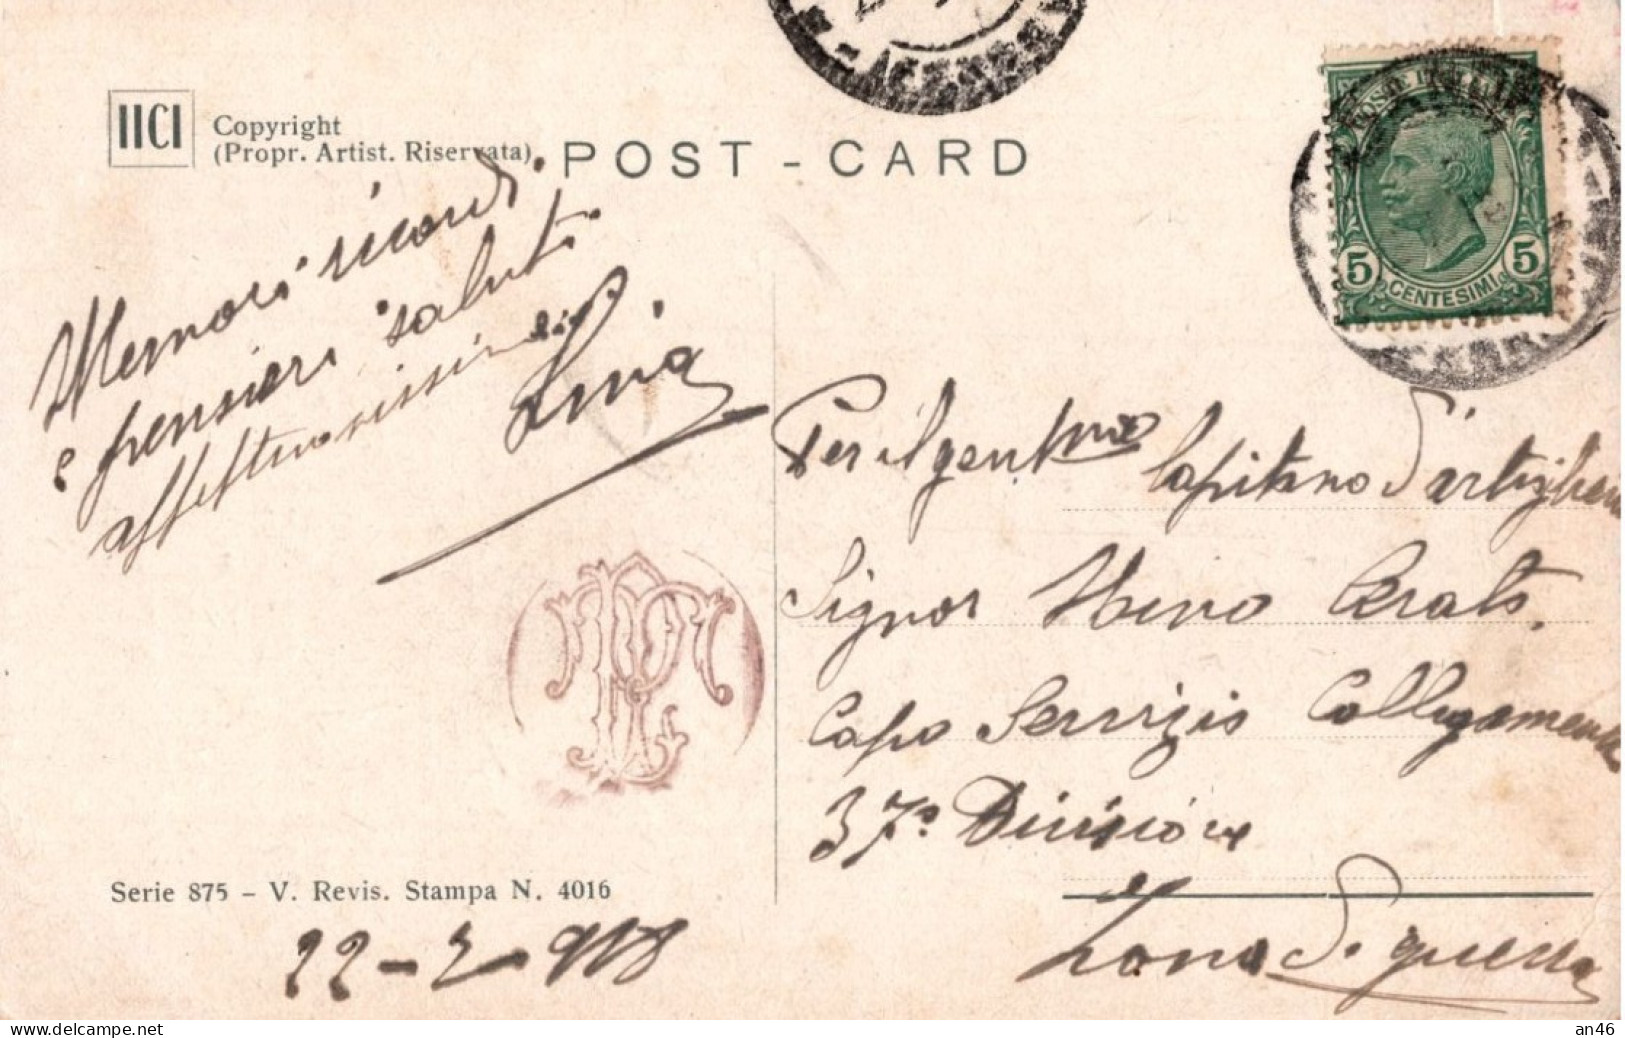 IICI
Copyright
(Propr. Artist. Riservata).
POST - CARD
POSTE ITALIANE
5 CENTESIMI 5
Memori ricordi
e pensieri saluti
affettuosissimi
Lina
Per il gent.mo Capitano d'artiglieria
Signor Cerato.
Capo Servizio Collegamento
37a Divisione
Zona di guerra
Serie 875 - V. Revis. Stampa N. 4016
22-2-918
delcampe.net
an46